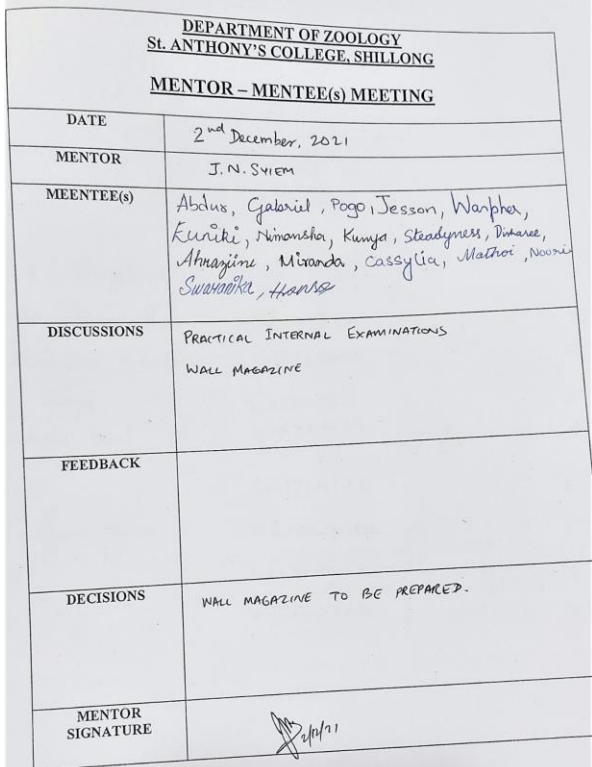 DEPARTMENT OF ZOOLOGY
St. ANTHONY'S COLLEGE, SHILLONG
MENTOR – MENTEE(s) MEETING
DATE
2nd December, 2021
MENTOR
J. N. SYIEM
MEENTEE(s)
Abdus, Gabriel, Pogo, Jesson, Wanpher,
Euniki, Nimansha, Kunya, Steadyness,
Miranda, Cassylia, Mathoi, Noorie
Swaranika,
DISCUSSIONS
PRACTICAL INTERNAL EXAMINATIONS
WALL MAGAZINE
FEEDBACK
DECISIONS
WALL MAGAZINE TO BE PREPARED.
MENTOR
SIGNATURE
2/12/21